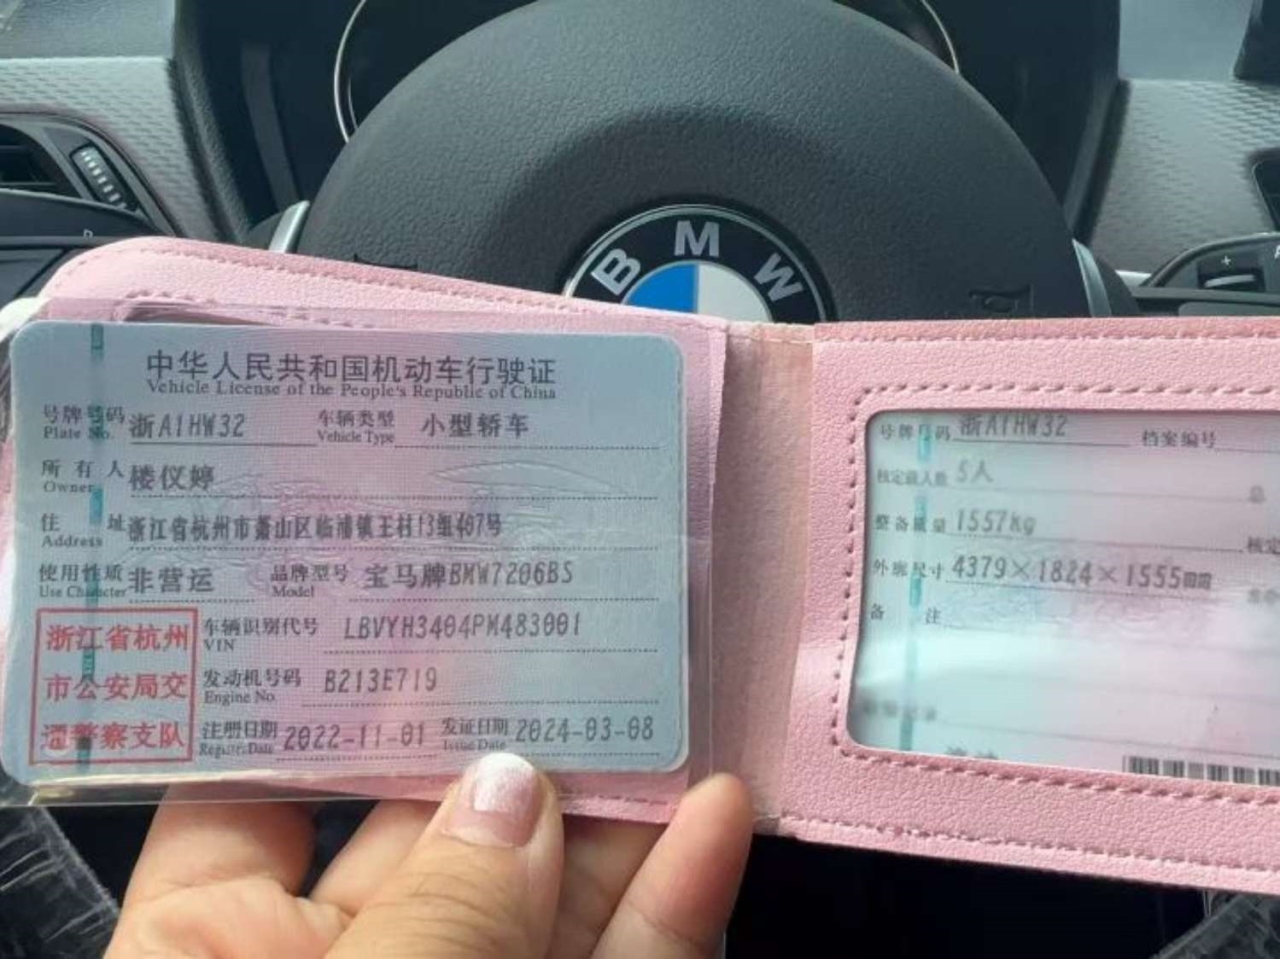 BMW
中华人民共和国机动车行驶证
Vehicle License of the People's Republic of China
号牌号码 浙A1HW32 车辆类型 小型轿车
Plate No. Vehicle Type
所有人 楼仪婷
Owner
住址 浙江省杭州市萧山区临浦镇王村13组407号
Address
使用性质 非营运 品牌型号 宝马牌BMW7206BS
Use Character Model
浙江省杭州
市公安局交
通警察支队
车辆识别代号 LBVYH3404PM483001
VIN
发动机号码 B213E719
Engine No.
注册日期 2022-11-01 发证日期 2024-03-08
Register Date Issue Date
号牌号码 浙A1HW32 档案编号
核定载人数 5人 总
整备质量 1557kg 核定
外廓尺寸 4379×1824×1555mm
备注